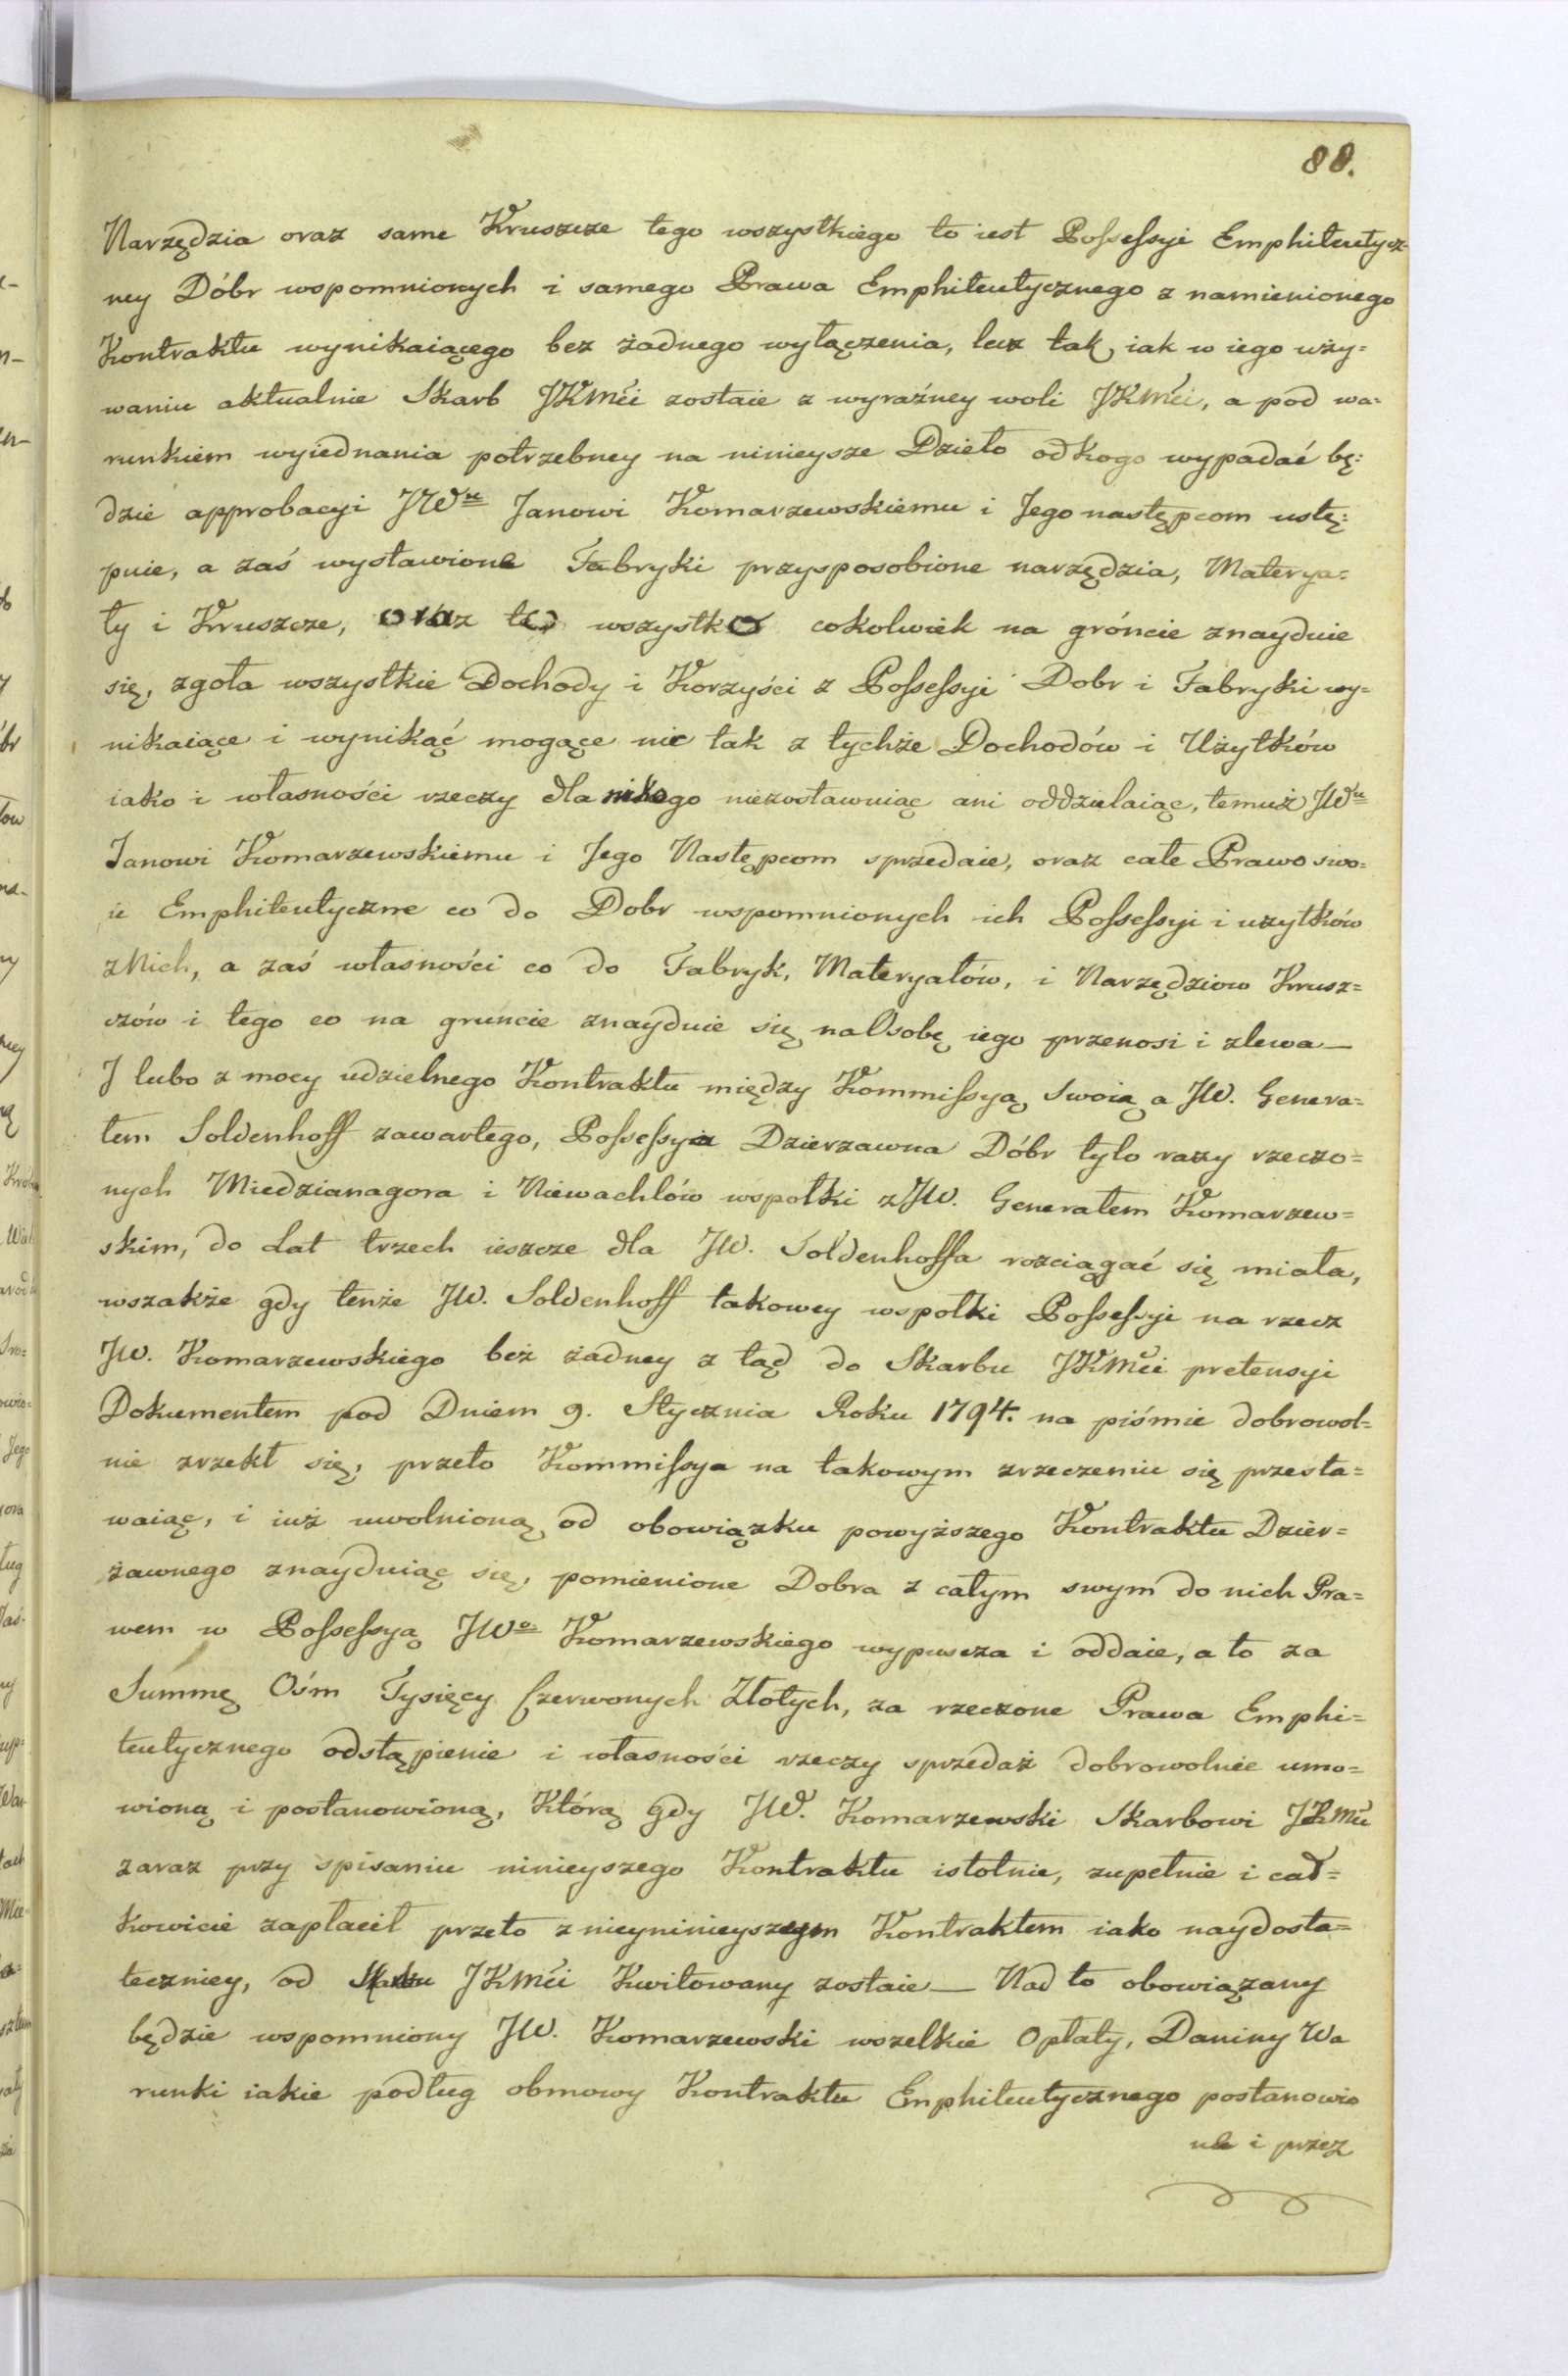 88.
Narzędzia oraz same Kruszcze tego wszystkiego to iest Possessyi Emphiteutycz=
ney Dóbr wspomnionych i samego Prawa Emphiteutycznego z namienionego
Kontraktu wynikaiącego bez żadnego wyłączenia, lecz tak, iak w iego uży=
waniu aktualnie Skarb JKMći zostaie z wyraźney woli JKMći, a pod wa=
runkiem wyiednania potrzebney na ninieysze Dzieło od kogo wypadać bę=
dzie approbacyi JWu Janowi Komarzewskiemu i Jego następcom ustę=
puie, a zaś wystawione Fabryki przysposobione narzędzia, Materya=
ły i Kruszcze, oraz to wszystko cokolwiek na gróncie znayduie
się, zgoła wszystkie Dochody i Korzyści z Possessyi Dobr i Fabryki wy=
nikaiące i wynikąć mogące nic tak z tychże Dochodów i Użytków
iako i własności rzeczy dla nikogo niezostawuiąc ani oddzielaiąc, temuż JWu
Janowi Komarzewskiemu i Jego Następcom sprzedaie, oraz całe Prawo swo=
ie Emphiteutyczne co do Dobr wspomnionych ich Possessyi i uzytków
z Nich, a zaś własności co do Fabryk, Materyałów, i Narzędziow Krusz=
czów i tego co na gruncie znayduie się na Osobę iego przenosi i zlewa—
J lubo z mocy udzielnego Kontraktu między Kommissyą Swoią a JW. Genera=
łem Soldenhoff zawartego, Possessyia Dzierzawna Dóbr tylo razy rzeczo=
nych Miedzianagora i Niewachlów wspołki z JW. Generałem Komarzew=
skim, do Lat trzech ieszcze dla JW. Soldenhoffa rozciągać się miała,
wszakże gdy tenże JW. Soldenhoff takowey wspołki Possessyi na rzecz
JW. Komarzewskiego beż żadney z tąd do Skarbu JKMći pretensyi
Dokumentem pod Dniem 9. Stycznia Roku 1794. na piśmie dobrowol=
nie zrzekł się, przeto Kommissya na takowym zrzeczeniu się przesta=
waiąc, i iuż uwolnioną od obowiązku powyższego Kontraktu Dzier=
żawnego znayduiąc się, pomienione Dobra z całym swym do nich Pra=
wem w Possessyą JWo Komarzewskiego wypuscza i oddaie, a to za
Summę Ośm Tysięcy Czerwonych Złotych, za rzeczone Prawa Emphi=
teutycznego odstąpienie i własności rzeczy sprzedaż dobrowolnie umo=
wioną i postanowioną, Którą gdy JW. Komarzewski Skarbowi JKMći
zaraz przy spisaniu ninieyszego Kontraktu istotnie, zupełnie i cał=
kowicie zapłacił przeto z niey ninieyszym Kontraktem iako naydosta=
teczniey, od Skarbu JKMći Kwitowany zostaie— Nad to obowiązany
będzie wspomniony JW. Komarzewski wszelkie Opłaty, Daniny Wa
runki iakie podług obmowy Kontraktu Emphiteutycznego postanowio
ne i przez